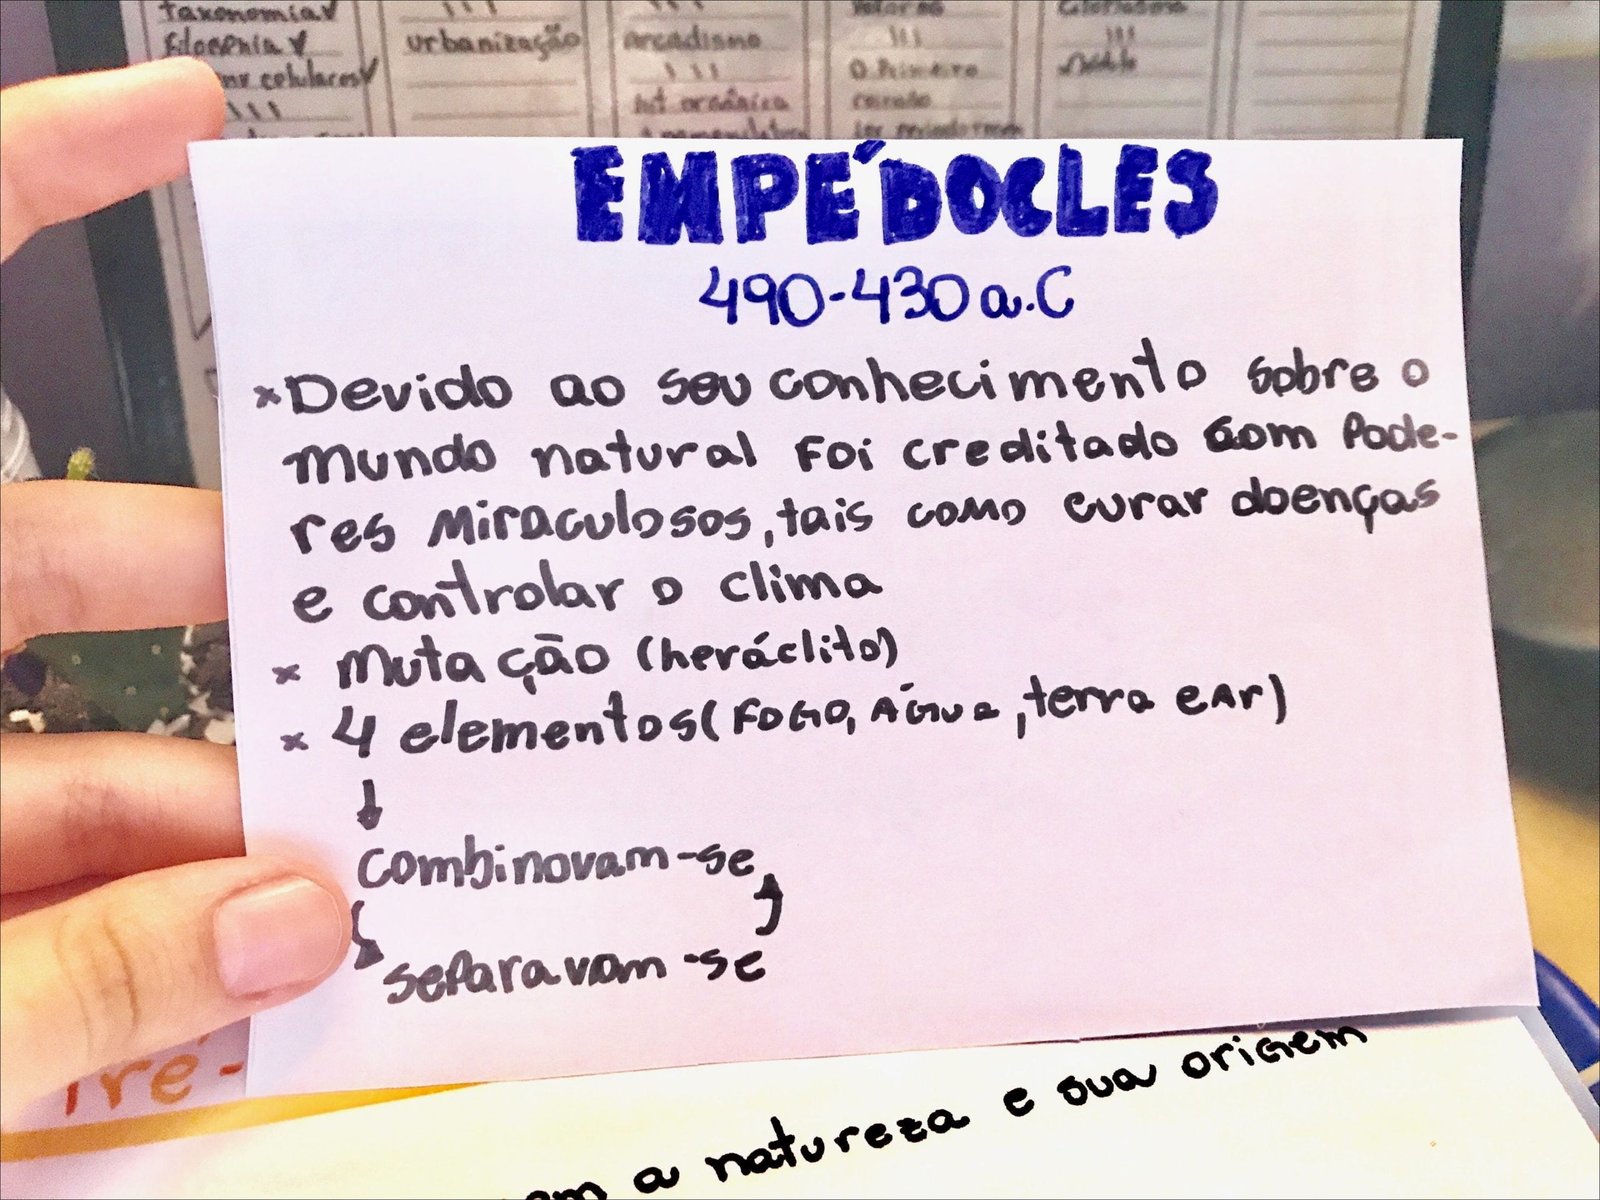 taxonomia
Filosofia
celulares
urbanização
arcadismo
O Primeiro
EMPÉDOCLES
490-430 a.C
×Devido ao seu conhecimento sobre o
mundo natural foi creditado com Pode-
res miraculosos, tais como curar doenças
e controlar o clima
× mutação (heráclito)
× 4 elementos (FOGO, ÁGUA, terra e Ar)
↓
combinavam-se
separavam-se
Pré-
a natureza e sua origem